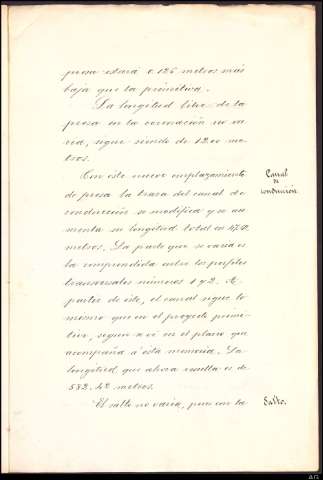 presa estará 0.126 metros más
baja que la primitiva.
La longitud libre de la
presa en la coronación no va
ria, sigue siendo de 12.00 me
tros.
Con este nuevo emplazamiento
de presa la traza del canal de
conducción se modifica y se au
menta su longitud total en
metros. La parte que se varía es
la comprendida entre los perfiles
transversales números 1 y 2. A
partir de éste, el canal sigue lo
mismo que en el proyecto primi-
tivo, según se vé en el plano que
acompaña á esta memoria. La
longitud que ahora resulta es de
582.42 metros.
El salto no varía, pues con la
Canal
de
conducción
Salto.